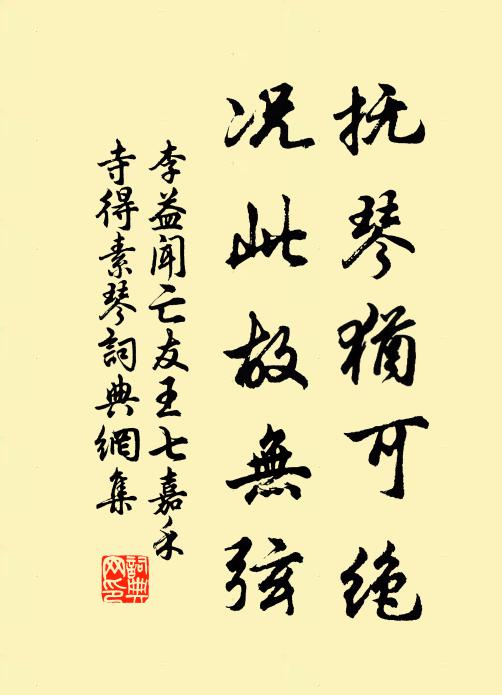 抚琴犹可绝
况此故無弦
李益闻亡友王七嘉禾
寺得素琴詞典網集
詞典
网印